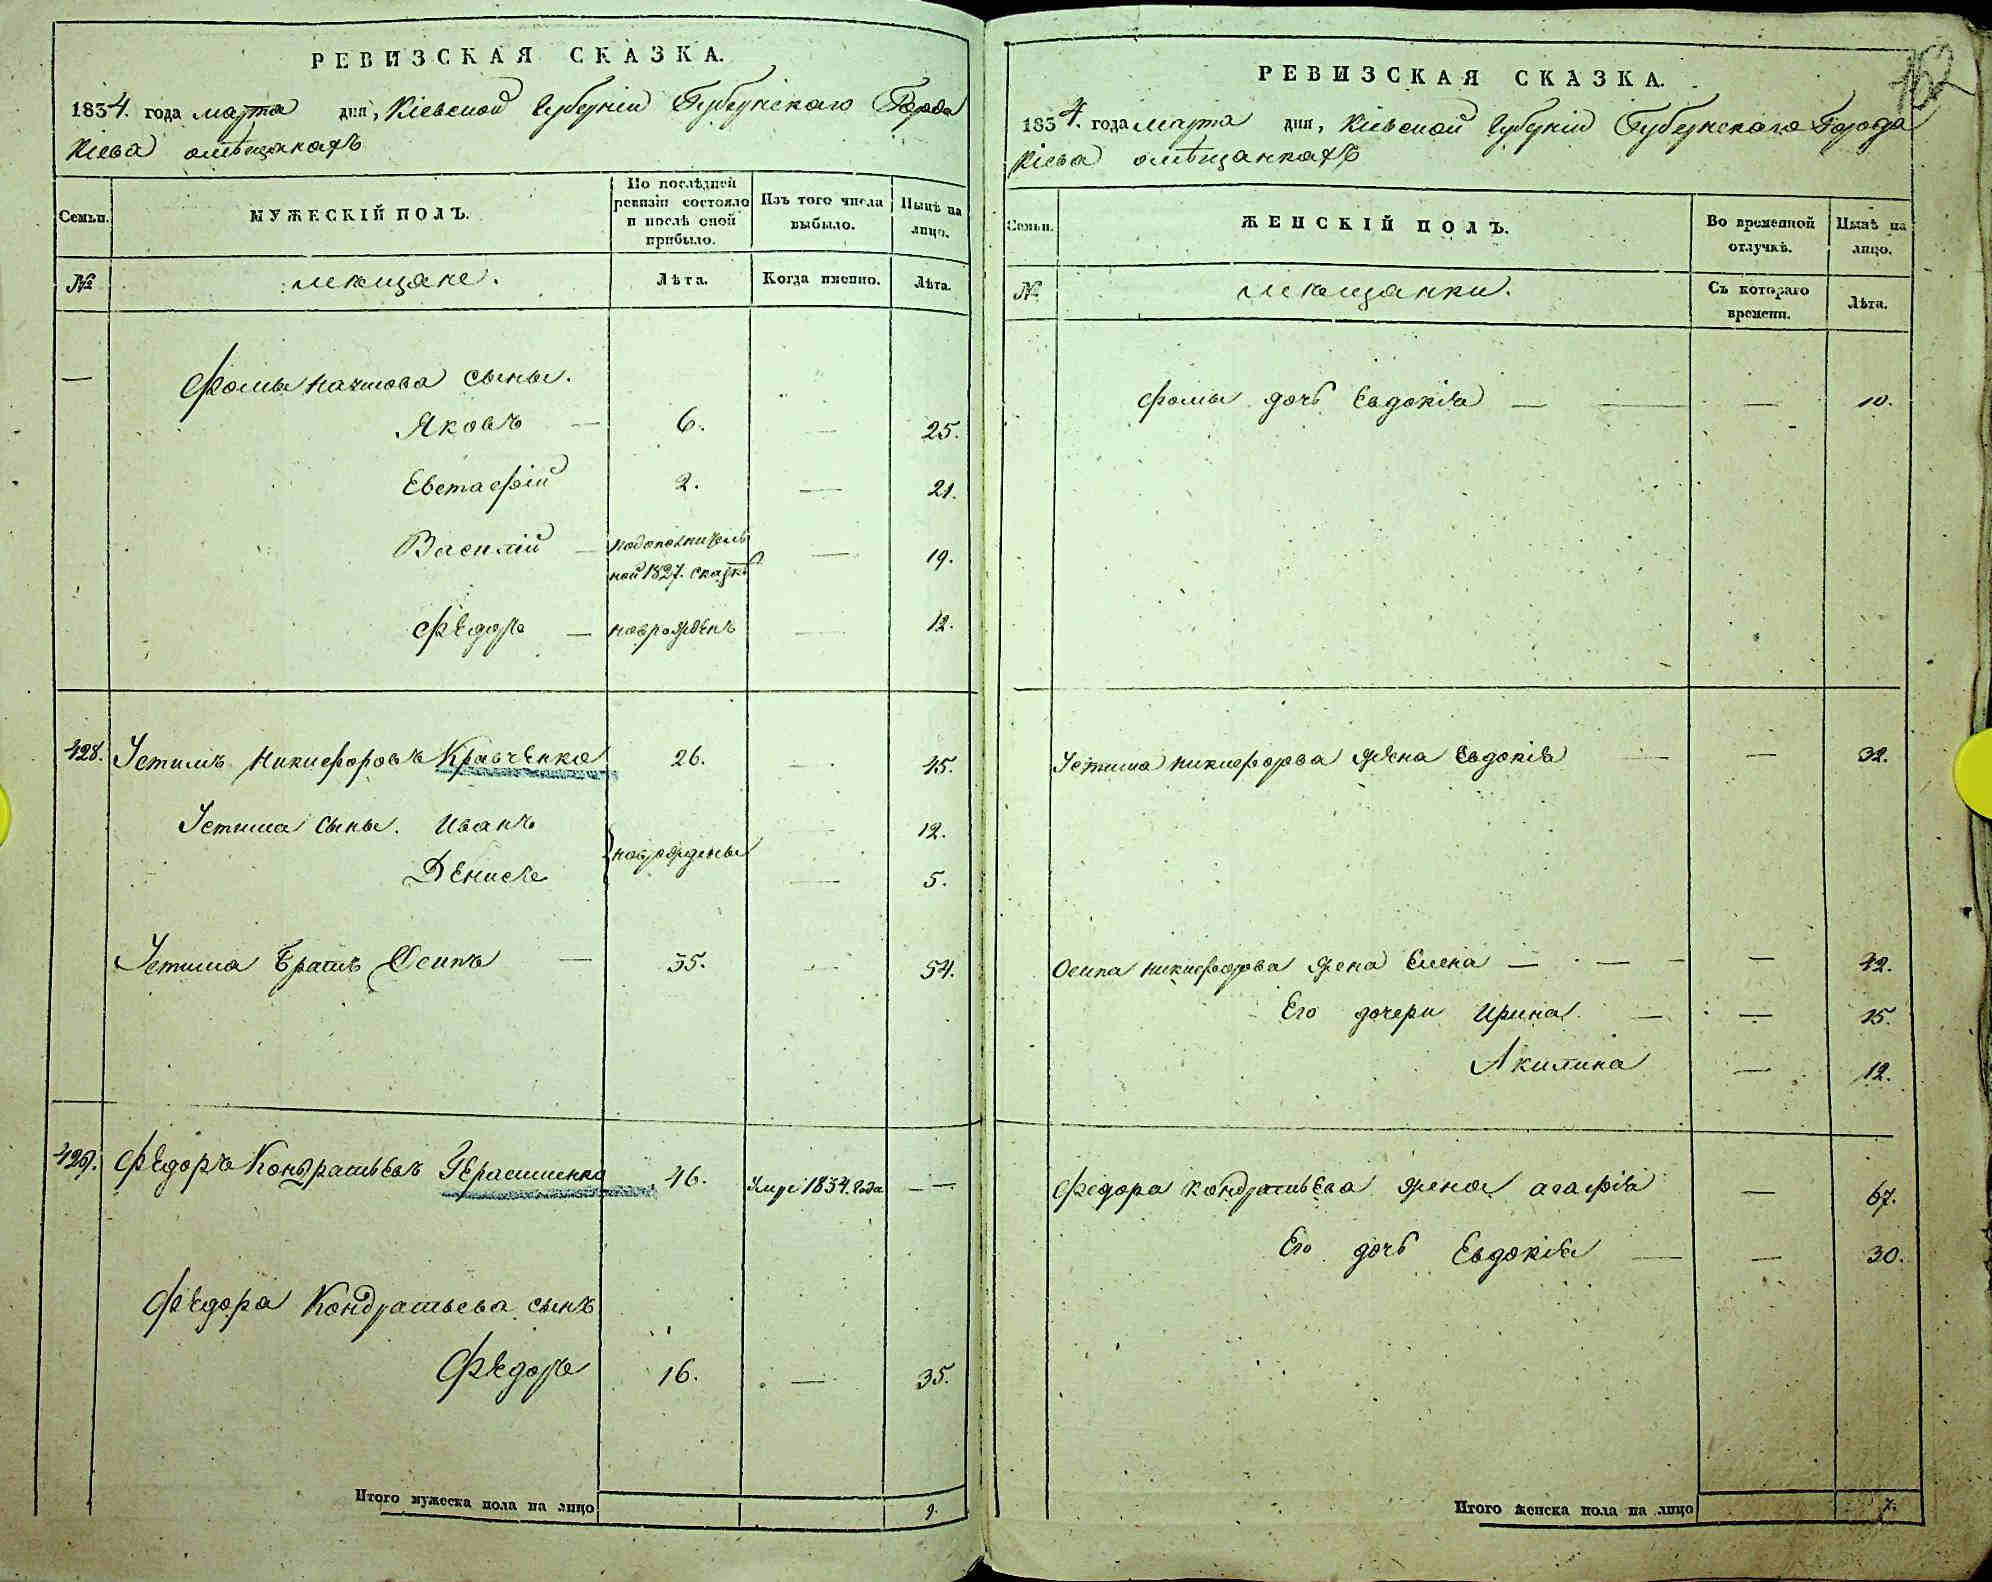 РЕВИЗСКАЯ СКАЗКА.
1834. года марта дня, Кіевской Губерніи Губернскаго Города
Кіева о мѣщанахъ
Семьи.
МУЖЕСКІЙ ПОЛЪ.
По послѣдней
ревизіи состояло
и послѣ оной
прибыло.
Изъ того числа
выбыло.
Нынѣ на
лицо.
№
мѣщане.
Лѣта.
Когда именно.
Лѣта.
— Фомы сыны.
Яковъ — 6. — 25.
Евстафій 2. — 21.
Василій — по дополнитель
ной 1827. сказкѣ — 19.
Федоръ — новрожденъ — 12.
428. Устимъ Никифоровъ Кравченко 26. — 45.
Устима сыны. Иванъ — 12.
новрождены
Денисъ — 5.
Устима братъ Осипъ — 35. — 54.
429. Федоръ Кондратьевъ Герасименко 46. Умре 1834. года — —
Федора Кондратьева сынъ
Федоръ 16. — 35.
Итого мужеска пола на лицо 9.
162
РЕВИЗСКАЯ СКАЗКА.
1834. года марта дня, Кіевской Губерніи Губернскаго Города
Кіева о мѣщанкахъ
Семьи.
ЖЕНСКІЙ ПОЛЪ.
Во временной
отлучкѣ.
Нынѣ на
лицо.
№
мѣщанки.
Съ котораго
времени.
Лѣта.
Фомы дочь Евдокія — — — 10.
Устима Никифорова жена Евдокія — — 32.
Осипа Никифорова жена Елена — — — — 42.
Его дочери Ирина — — 15.
Акилина — 12.
Федора Кондратьева жена Агафія — 67.
Его дочь Евдокія — — 30.
Итого женска пола на лицо 7.